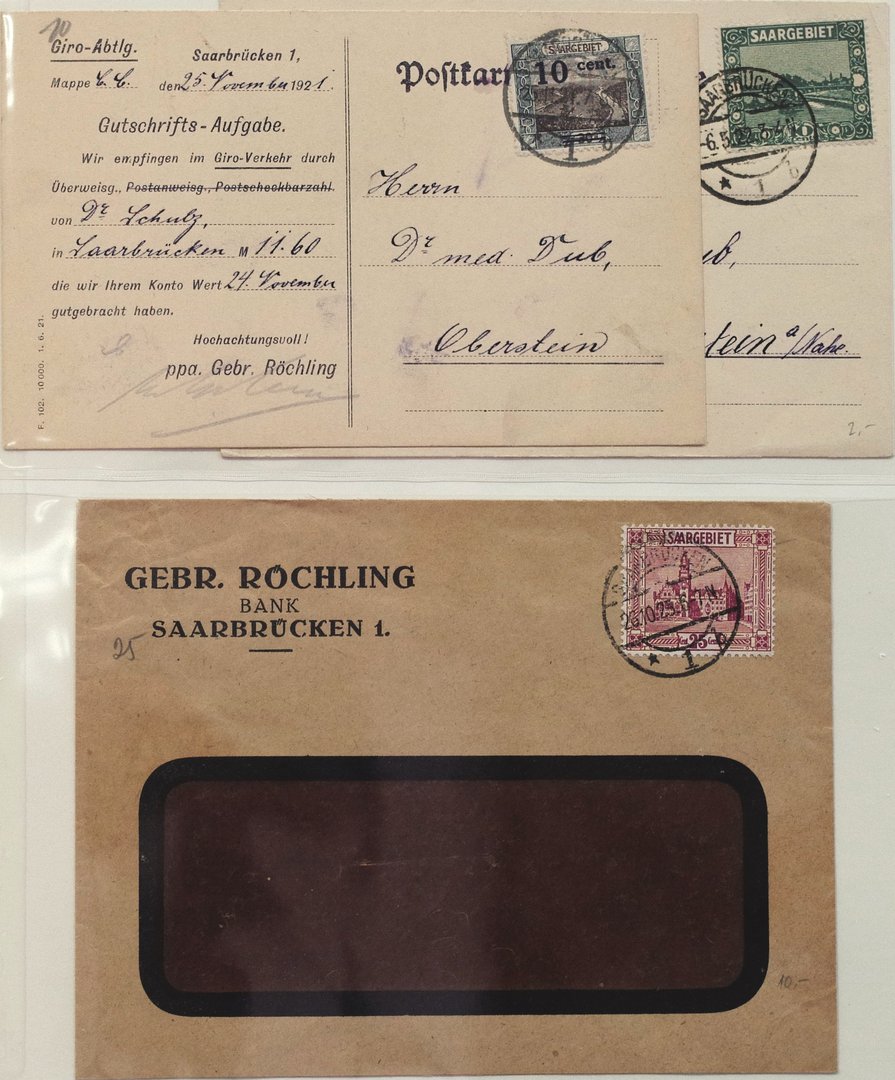 10
Giro-Abtlg.
Saarbrücken 1,
Mappe C. C. den 25. November 1921.
Gutschrifts-Aufgabe.
Wir empfingen im Giro-Verkehr durch
Überweisg., Postanweisg., Postscheckbarzahl.
von Dr Schulz,
in Saarbrücken M 11.60
die wir Ihrem Konto Wert 24. November
gutgebracht haben.
Hochachtungsvoll!
ppa. Gebr. Röchling
F. 102. 10 000. 1. 6. 21.
Postkart
SAARGEBIET
10 cent.
1 b
Herrn
Dr med. Dub,
Oberstein
SAARGEBIET
SAARBRÜCKEN
-6.5.22.3-4N
1 b
ub,
tein a/Nahe.
2,-
GEBR. RÖCHLING
BANK
SAARBRÜCKEN 1.
25
SAARGEBIET
25
SAARBRÜCKEN
26.10.25.6-7N
1 b
10,-